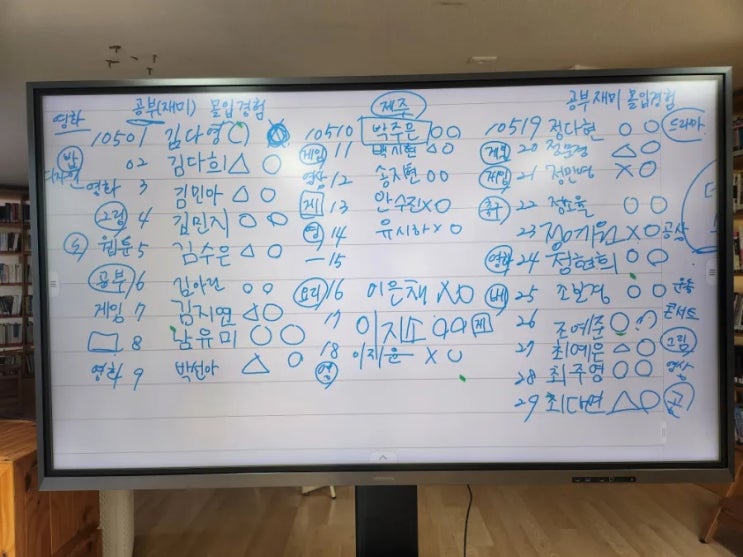 영화 공부(재미) 몰입경험
10501 김다영
02 김다희 △ ○
디자인 영화 3 김민아 △ ○
그림 4 김민지 ○ ○
웹툰 5 김수은 △ ○
공부 6 김아란 ○ ○
게임 7 김지연 △ ○
8 남유미 ○ ○
영화 9 박선아 △ ○
제주
10510 박주은 ○ ○
게임 11 백시현 △ ○
영상 12 송지현 ○ ○
13 안수진 X ○
영 14 유시하 X ○
15
요리 16 이은채 X ○
17 이지소 ○ ○
18 이지윤 X ○
영
공부 재미 몰입경험
10519 정다현 ○ ○ 드라마
20 △ ○
게임 21 X ○
22 ○ ○
23 X ○ 공상
영화 24 정현희 ○ ○
베 25 조보경 ○ ○ 운동
콘서트
26 조예준 ○
27 최예은 △ ○ 그림
28 최주영 ○ ○ 영상
29 최다연 △ ○